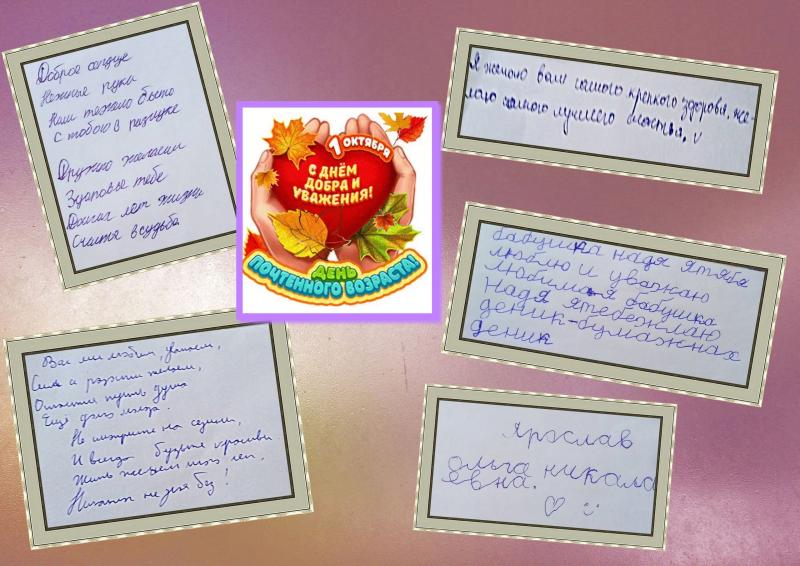 Доброе сердце
Нежные руки
Нам тяжело было
С тобою в разлуке
Дружно желаем
Здоровье тебе
Долгих лет жизни
Счастья в судьбе
1 ОКТЯБРЯ
С ДНЁМ
ДОБРА И
УВАЖЕНИЯ!
ДЕНЬ
ПОЧТЕННОГО ВОЗРАСТА!
Я желаю вам самого крепкого здоровя, же-
лаю самого лучшего счастья.
бабушка надя ятябя
люблю и уважаю
любимая бабушка
надя ятебежлаю
деник-бумажнах
деник
Вас мы любим, уважаем,
Силы и радости желаем,
пусть душа
Ещё
Не смотрите на седины,
И всегда будьте красивы
Жить желаем много лет,
Никогда не зная бед!
Ярослав
ольга никала
евна.